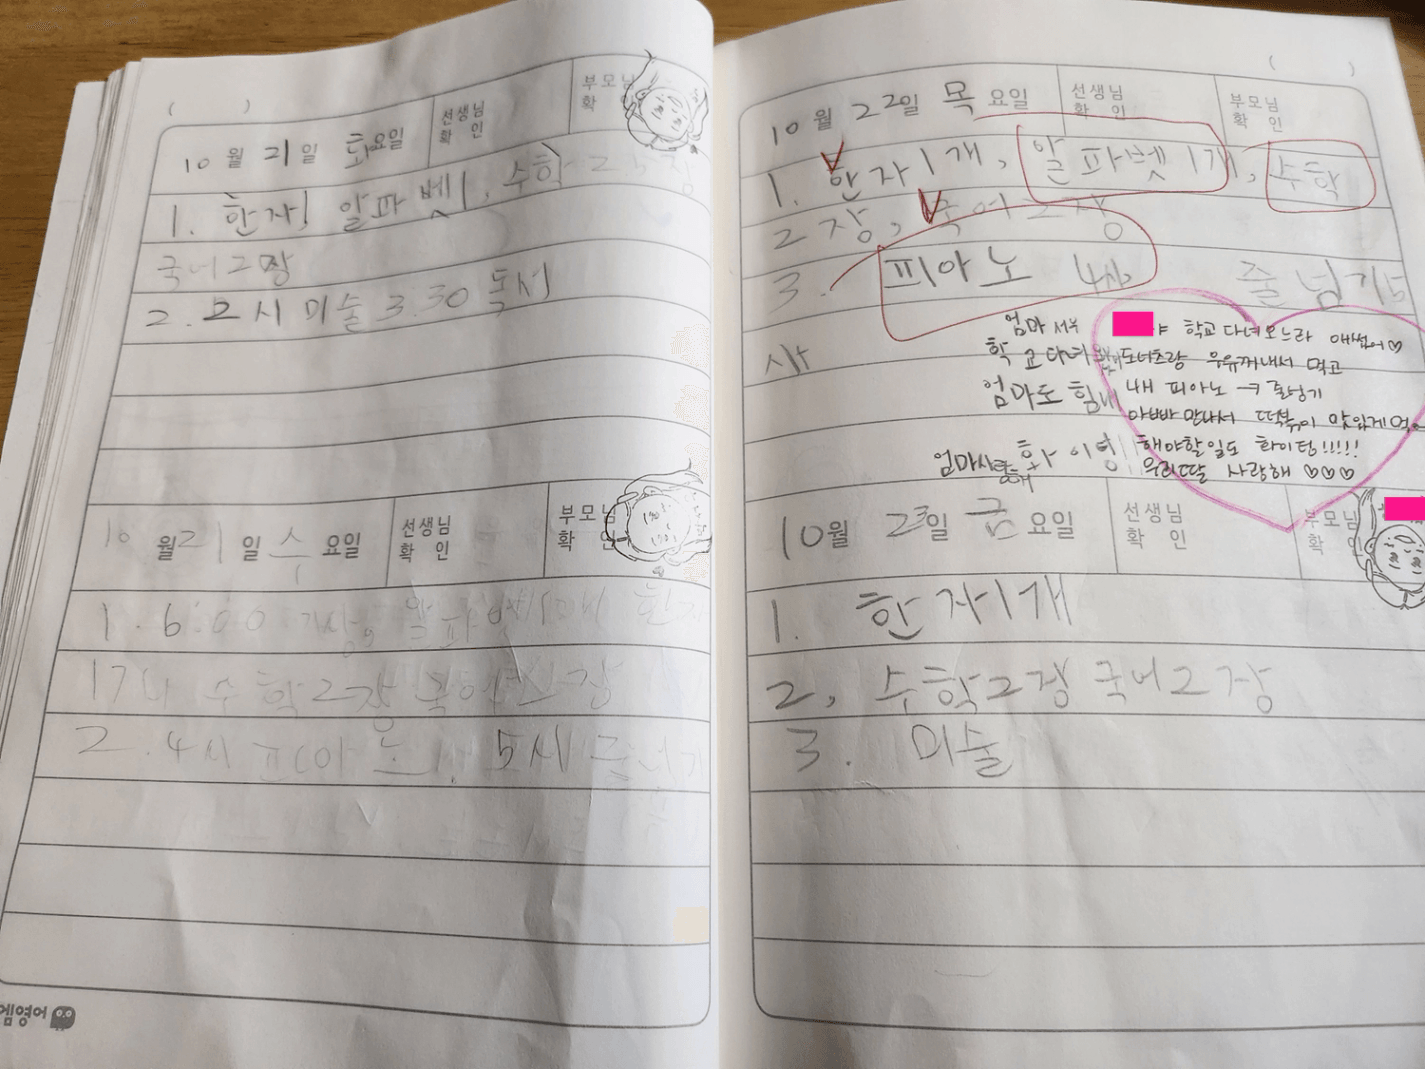 ( )
10 월 21 일 화요일 선생님 확 인 부모님 확
1. 한자1 알파벳1, 수학 2 장
국어2장
2. 2시 미술 3.30 독서
10 월 21 일 수 요일 선생님 확 인 부모님 확 인
1. 6:00 기상, 알파벳1개 한자
1개 수학2장 국어2장
2. 4시 피아노, 5시 줄넘기
엠영어
( )
10 월 22일 목 요일 선생님 확 인 부모님 확 인
1. 한자1개, 알파벳 1개, 수학
2장, 국어2장
3. 피아노 4시, 줄넘기5
시
엄마
학교다녀
엄마도 힘내
엄마사랑해 화이팅
야 학교 다녀오느라 애썼어♡
도너츠랑 우유꺼내서 먹고
4시 피아노 → 줄넘기
아빠 만나서 떡볶이 맛있게 먹
해야할일도 화이팅!!!!!
우리딸 사랑해 ♡♡♡
10월 23일 금 요일 선생님 확 인 부모님 확 인
1. 한자1개
2, 수학2장 국어2장
3. 미술